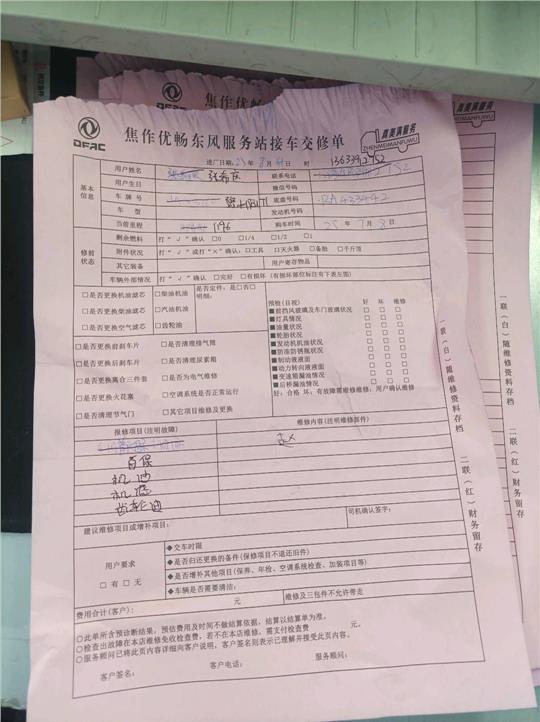 DFAC
焦作优畅东风服务站接车交修单
真美满服务
ZHENMEIMANFUWU
进厂日期: 25年 8月 日 时
13633912752
用户姓名 张希庆 联系电话
基本信息
用户生日 微信号码
车牌号 底盘号码 RA433442
车型 发动机号码
当前里程 1196 购车时间 25年 7月 日
修前状态
剩余燃料 打“√”确认 □0 □1/4 □1/2 □1
附件状况 打“√”或打“×”确认:□工具 □灭火器 □备胎 □千斤顶
其它装备 用户寄存物品
车辆外部情况 打“√”确认 □完好 □有损坏(有损坏部位标注有下表左图)
□是否更换机油滤芯 □柴油机油 是否定件: 是□否□
明细:
□是否更换柴油滤芯 □汽油机油
□是否更换空气滤芯 □齿轮油
□是否更换前刹车片 □是否清理排气筒
□是否更换后刹车片 □是否清理尿素箱
□是否更换离合三件套 □是否为电气维修
□是否更换火花塞 □空调系统是否正常运行
□是否清理节气门 □其它项目维修及更换
预检(目视) 好 坏 维修
■前挡风玻璃及车门玻璃状况 □ □ □
■灯具情况 □ □ □
■油量状况 □ □ □
■轮胎状况 □ □ □
■发动机机油状况 □ □ □
■防冻防锈瓶状况 □ □ □
■制动液液面 □ □ □
■动力转向液液面 □ □ □
■变速箱漏油情况 □ □ □
■后桥漏油情况 □ □ □
好: 合格 坏: 有故障需维修维修, 用户确认维修
报修项目(注明故障) 维修内容(注明维修部件)
首保
机油
机滤
齿轮油
建议维修项目或增补项目: 司机确认签字:
用户要求
□ 有 □ 无
◆交车时限
◆是否归还更换的备件(保修项目不退还旧件)
◆是否增补其他项目(保养、年检、空调系统检查、加装项目等)
◆车辆是否需要清洁:
费用合计(客户): 元 维修及三包件不允许带走
○此单所含预诊断结果, 预估费用及时间不做结算依据, 结算以结算单为准。
○检查出故障在本店维修免收检查费, 若不在本店维修, 需支付检查费 元。
○服务顾问已将此页内容详细向客户说明, 客户签名则表示已理解并接受此页内容。
客户签名: 客户电话: 服务顾问:
一联(白)随维修资料存档
二联(红)财务留存